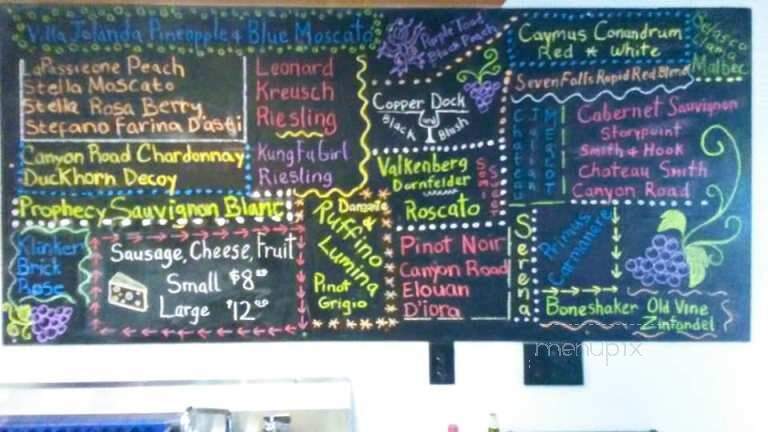 Villa Jolanda Pineapple & Blue Moscato
LaPassieone Peach
Stella Moscato
Stella Rosa Berry
Stefano Farina D'asti
Canyon Road Chardonnay
Duckhorn Decoy
Prophecy Sauvignon Blanc
Leonard
Kreusch
Riesling
KungFuGirl
Riesling
Klinker
Brick
Rose
Sausage, Cheese, Fruit
Small $8
Large $12
Danzante
&
Ruffino
Lumina
Pinot
Grigio
Purple Toad
Black Peach
Copper Dock
Black and Blush
Valkenberg
Dornfelder
Roscato
Pinot Noir
Canyon Road
Elouan
D'iora
Serena
Caymus Conundrum
Red * White
Seven Falls Rapid Red Blend
Chateau
Merlot
Cabernet Sauvignon
Storypoint
Smith & Hook
Chateau Smith
Canyon Road
Malbec
Primus
Carmenere
Boneshaker Old Vine
Zinfandel
menupix